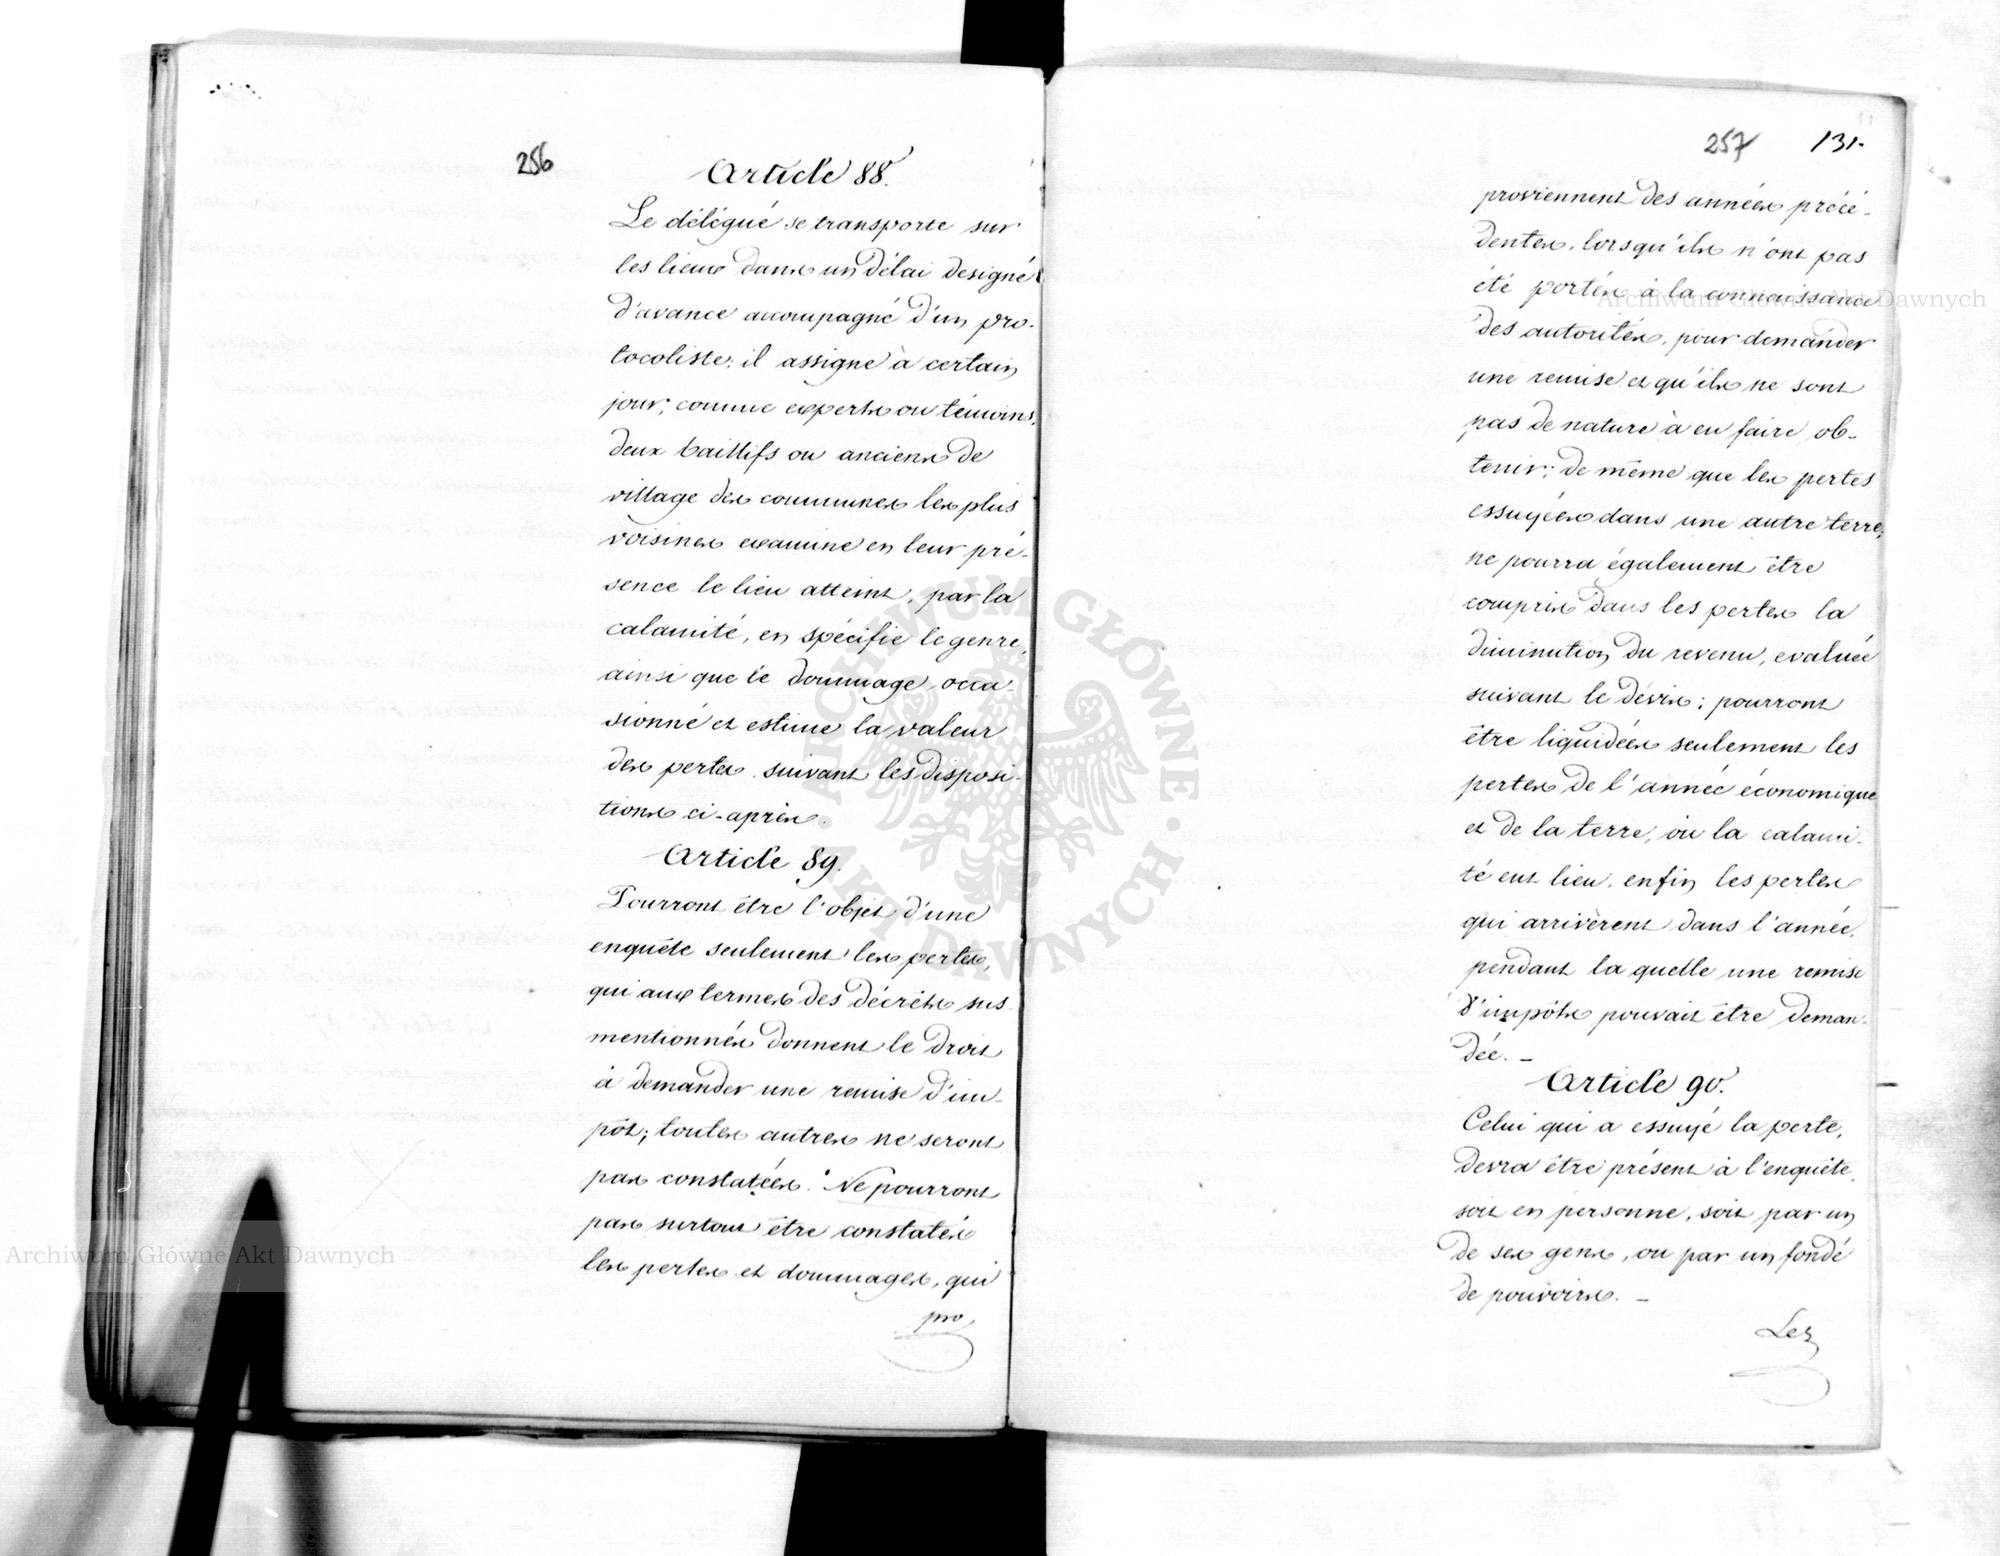 256
Article 88.
Le délégué se transporte sur
les lieux dans un délai designé
d'avance accompagné d'un pro-
tocoliste; il assigne à certain
jour, comme experts ou témoins,
deux baillifs ou anciens de
village des communes les plus
voisines examine en leur pré-
sence le lieu atteint, par la
calamité, en spécifie le genre,
ainsi que le dommage occa-
sionné et estime la valeur
des pertes suivant les disposi-
tions ci-après.
Article 89.
Pourront être l'objet d'une
enquête seulement les pertes,
qui aux termes des décrets sus
mentionnés donnent le droit
à demander une remise d'im-
pôt; toutes autres ne seront
pas constatées. Ne pourront
pas surtout être constatés
les pertes et dommages, qui
pro,
257 131.
proviennent des années précé-
dentes, lorsqu'ils n'ont pas
été portés à la connaissance
des autorités, pour demander
une remise et qu'ils ne sont
pas de nature à en faire ob-
tenir; de même que les pertes
essuyées dans une autre terre;
ne pourra également être
compris dans les pertes la
diminution du revenu, evaluée
suivant le dévis; pourront
être liquidées seulement les
pertes de l'année économique
et de la terre, où la calami-
té eut lieu, enfin les pertes
qui arrivèrent dans l'année,
pendant la quelle une remise
d'impôts pouvait être deman-
dée. -
Article 90.
Celui qui a essuyé la perte,
devra être présent à l'enquête,
soit en personne, soit par un
de ses gens, ou par un fondé
de pouvoirs. -
Les
Archiwum Główne Akt Dawnych
Archiwum Główne Akt Dawnych
ARCHIWUM GŁÓWNE · AKT DAWNYCH ·